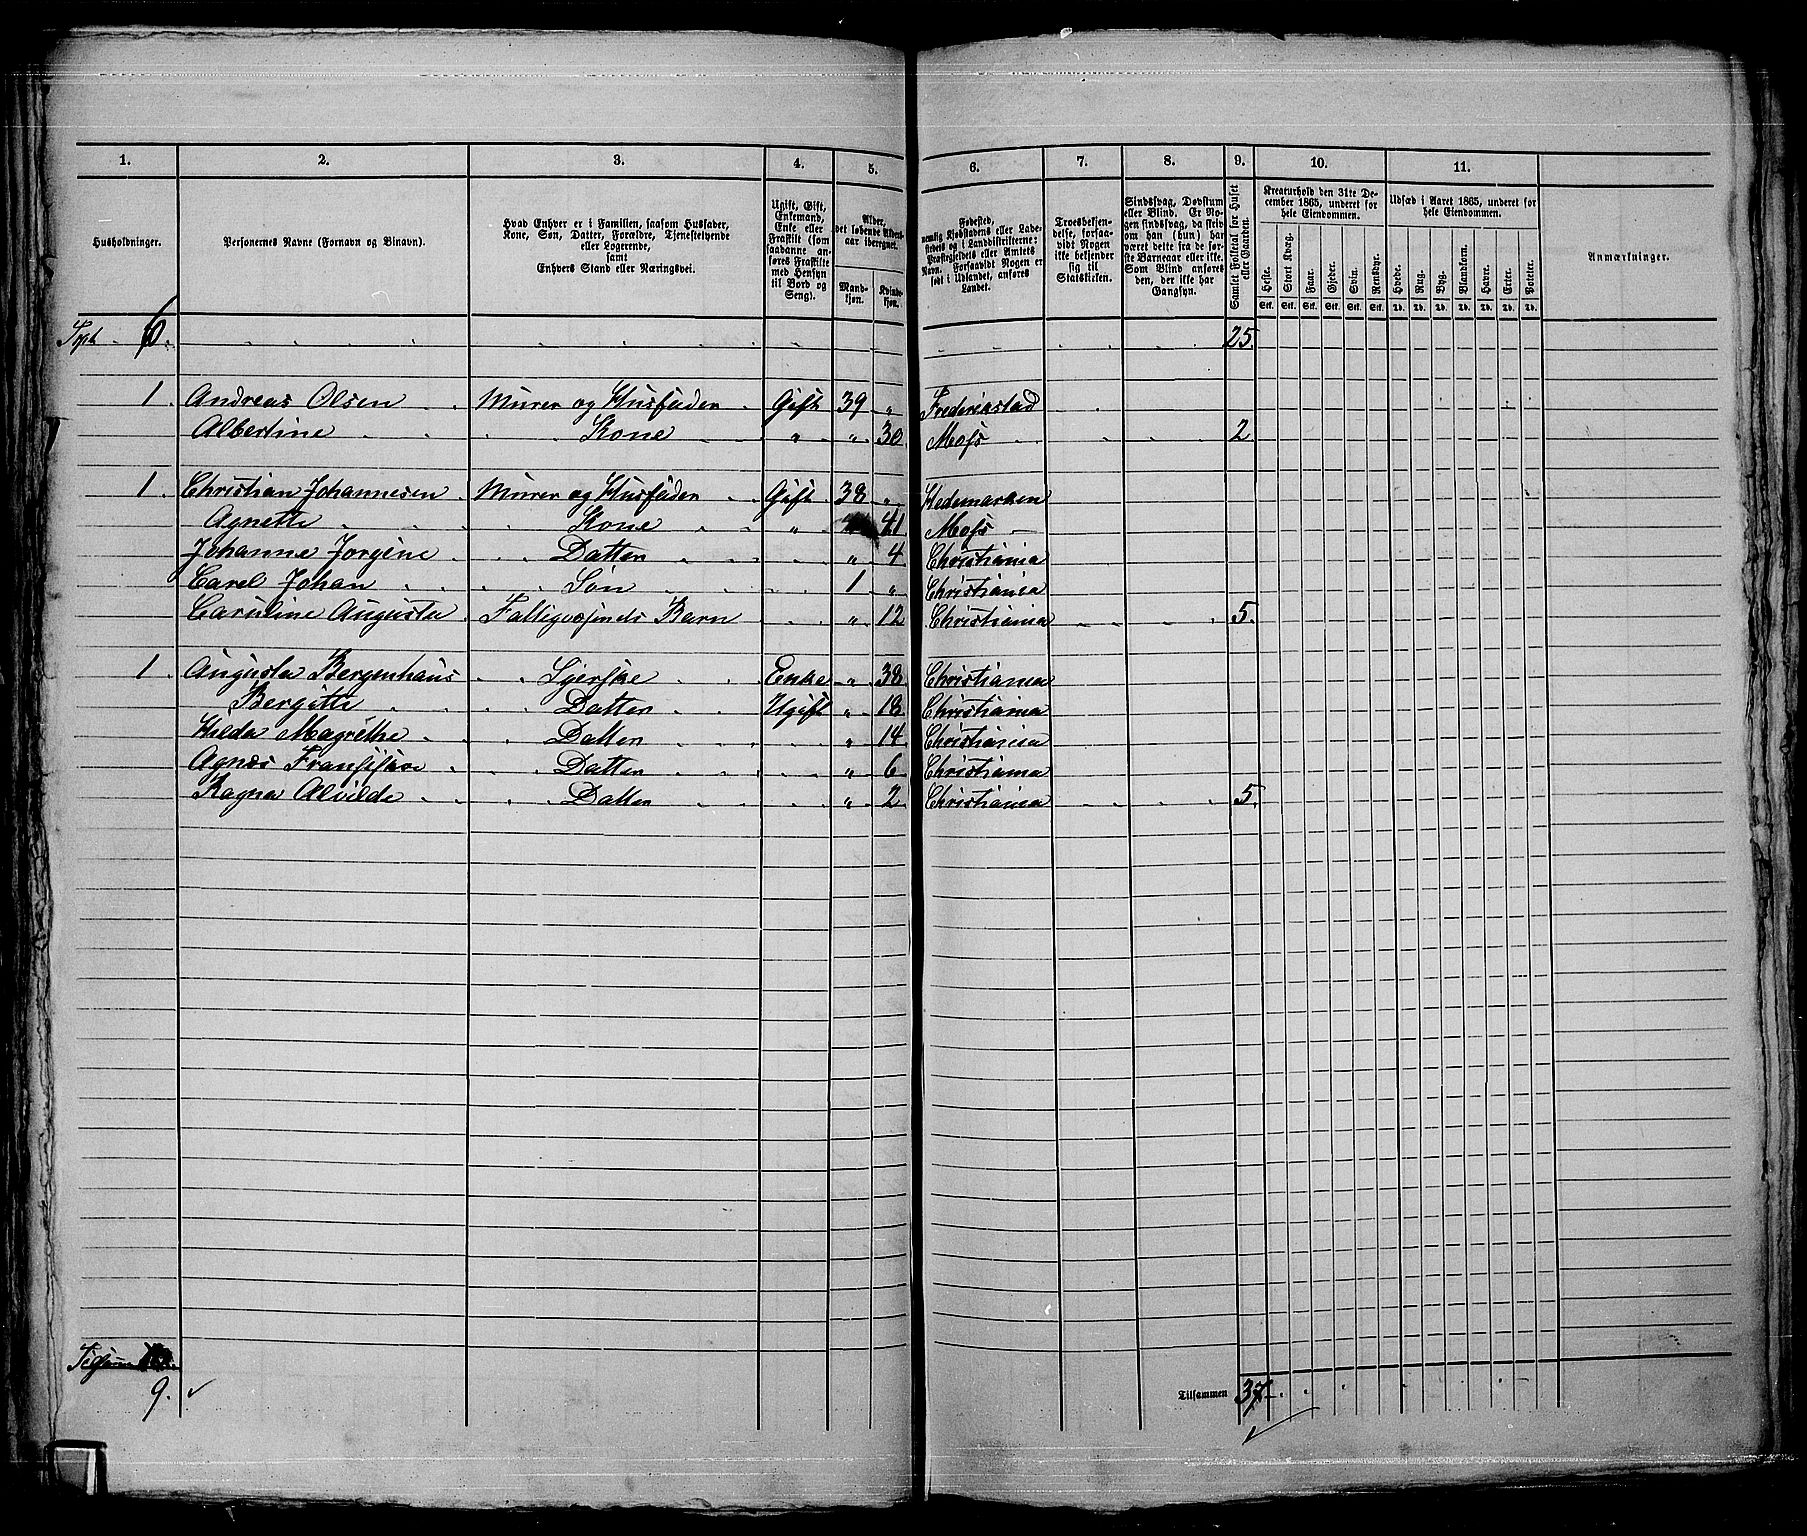 1. 2. 3. 4. 5. 6. 7. 8. 9. 10. 11.
Husholdninger.
Personernes Navne (Fornavn og Binavn).
Hvad Enhver er i Familien, saasom Husfader,
Kone, Søn, Datter, Forældre, Tjenestetyende
eller Logerende,
samt
Enhvers Stand eller Næringsvei.
Ugift, Gift,
Enkemand,
Enke eller
Fraskilt (som
saadanne an-
føres Fraskilte
med Hensyn
til Bord og
Seng).
Alder,
det løbende Alders-
aar iberegnet.
Mand-
kjøn.
Kvinde-
kjøn.
Fødested,
nemlig Kjøbstadens eller Lade-
stedets og i Landdistrikterne:
Præstegjeldets eller Amtets
Navn. Forsaavidt Nogen er
født i Udlandet, anføres
Landet.
Troesbekjen-
delse, forsaa-
vidt Nogen
ikke bekjender
sig til
Statskirken.
Sindssvag, Døvstum
eller Blind. Er No-
gen sindssvag, da skriv
om han (hun) har
været dette fra de før-
ste Barneaar eller ikke.
Som Blind anføres
den, der ikke har
Gangsyn.
Samlet Folketal for Huset
eller Gaarden.
Kreaturhold den 31te De-
cember 1865, underet for
hele Eiendommen.
Heste. Stort Kvæg. Faar. Gjeder. Svin. Rensdyr.
Stk. Stk. Stk. Stk. Stk. Stk.
Udsæd i Aaret 1865, underet for
hele Eiendommen.
Hvede. Rug. Byg. Blandkorn. Havre. Erter. Poteter.
Td. Td. Td. Td. Td. Td. Td.
Anmærkninger.
6. 25.
1. Andreas Olsen Murer og Husfader Gift 39 „ Frederikstad
Albertine Kone „ „ 30 Moss 2
1. Christian Johannesen Murer og Husfader Gift 38 „ Hedemarken
Agnette Kone „ 41 Moss
Johanne Jorgine Datter „ 4 Christiania
Carel Johan Søn 1 „ Christiania
Caruline Augusta Fattigvæsnets Barn „ 12 Christiania 5.
1. Augusta Bergenhaus Syerske Enke „ 38 Christiania
Bergitte Datter Ugift „ 18 Christiania
Hilda Magrethe Datter „ 14 Christiania
Agnes Datter „ 6 Christiania
Ragna Alvilde Datter „ 2 Christiania 5.
9. Tilsammen 37